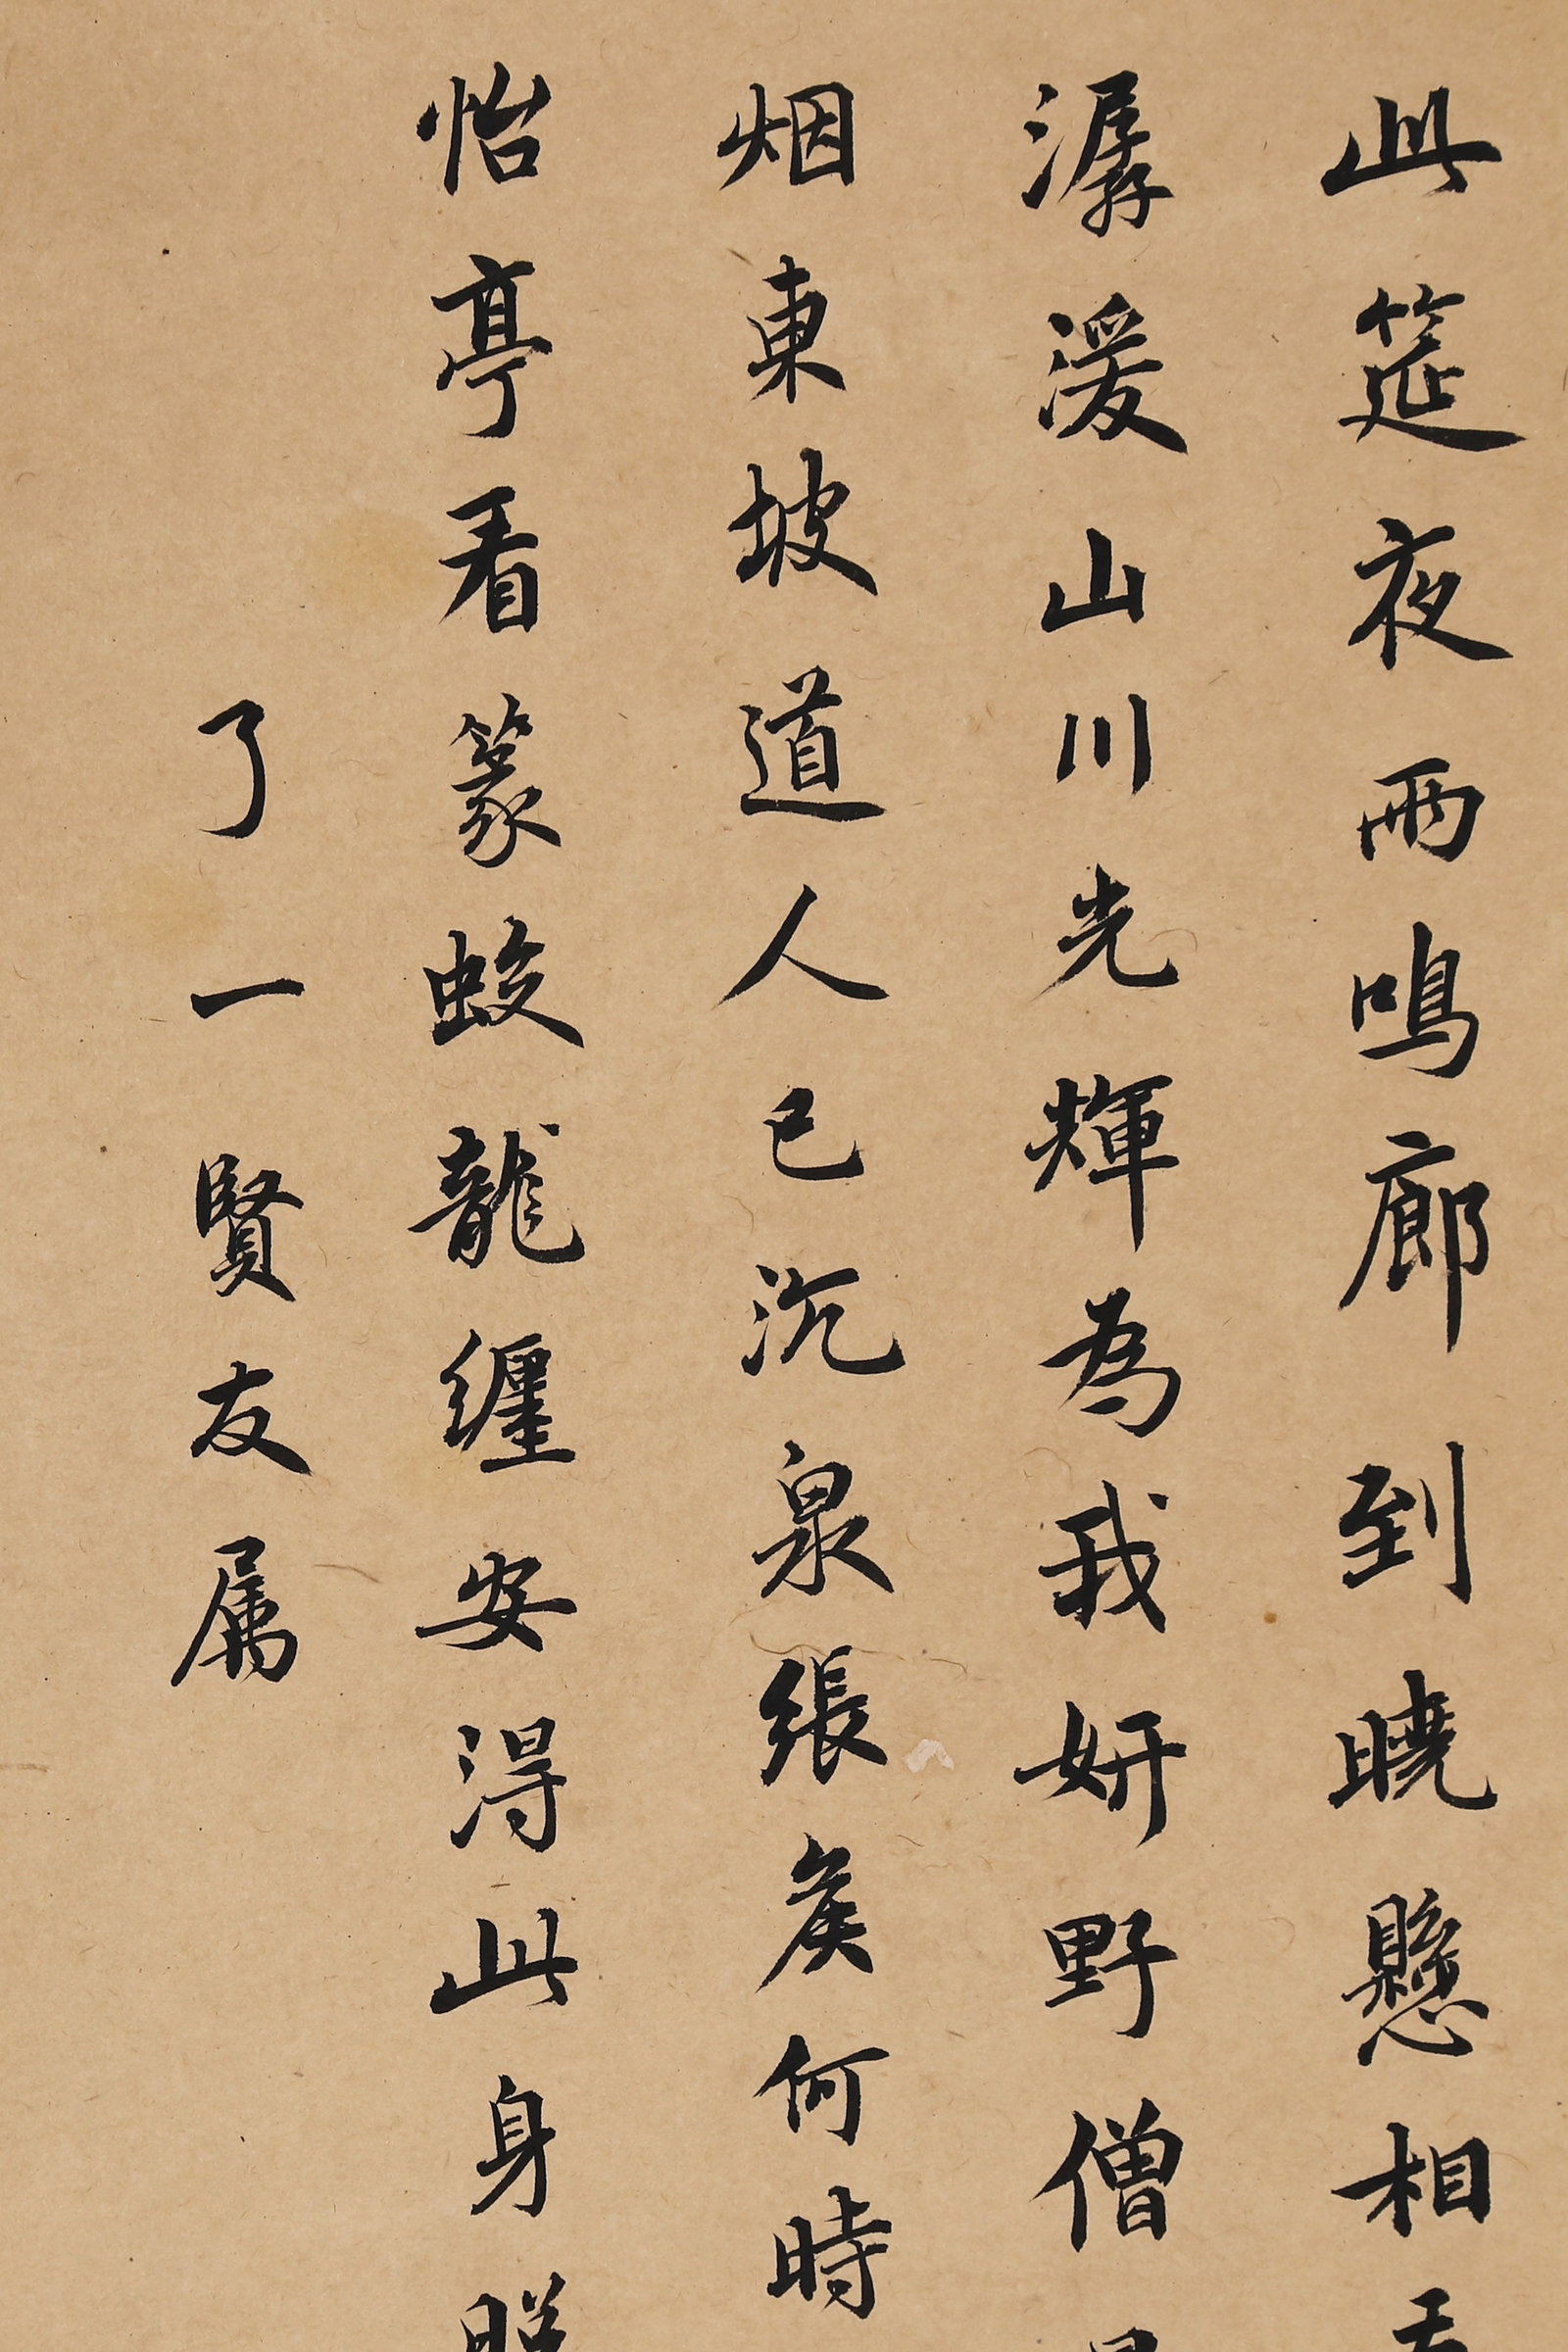 此筵夜雨鳴廊到曉懸相
潺湲山川光輝為我妍野僧
烟東坡道人已沉泉張矦何時
怡亭看篆蛟龍纏安得此身脱
了一賢友属